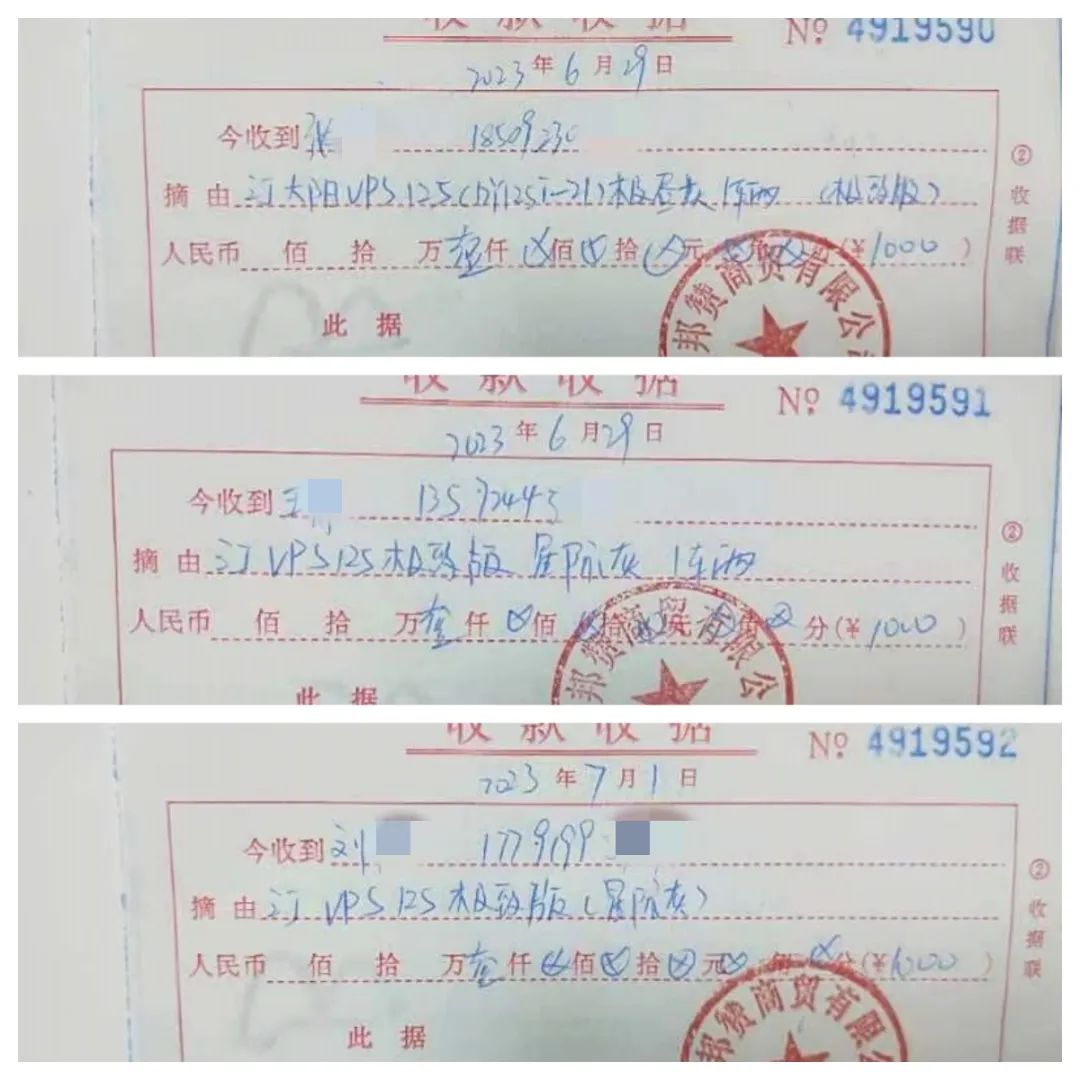 收款收据
№ 4919590
2023年6月29日
今收到张 18509230
摘由 订大阳VPS125(DY125T-21)极昼灰 1车两 (极致版)
人民币 佰 拾 万壹仟⊗佰⊗拾⊗元⊗角⊗分(¥1000)
此据
邦赞商贸有限公司
②收据联
收款收据
№ 4919591
2023年6月29日
今收到王 13592443
摘由 订VPS125极致版 星际灰 1车两
人民币 佰 拾 万壹仟⊗佰⊗拾⊗元⊗角⊗分(¥1000)
此据
邦赞商贸有限公
②收据联
收款收据
№ 4919592
2023年7月1日
今收到刘 1779199
摘由 订VPS125极致版(星际灰)
人民币 佰 拾 万壹仟⊗佰⊗拾⊗元⊗角⊗分(¥1000)
此据
邦赞商贸有限公
②收据联